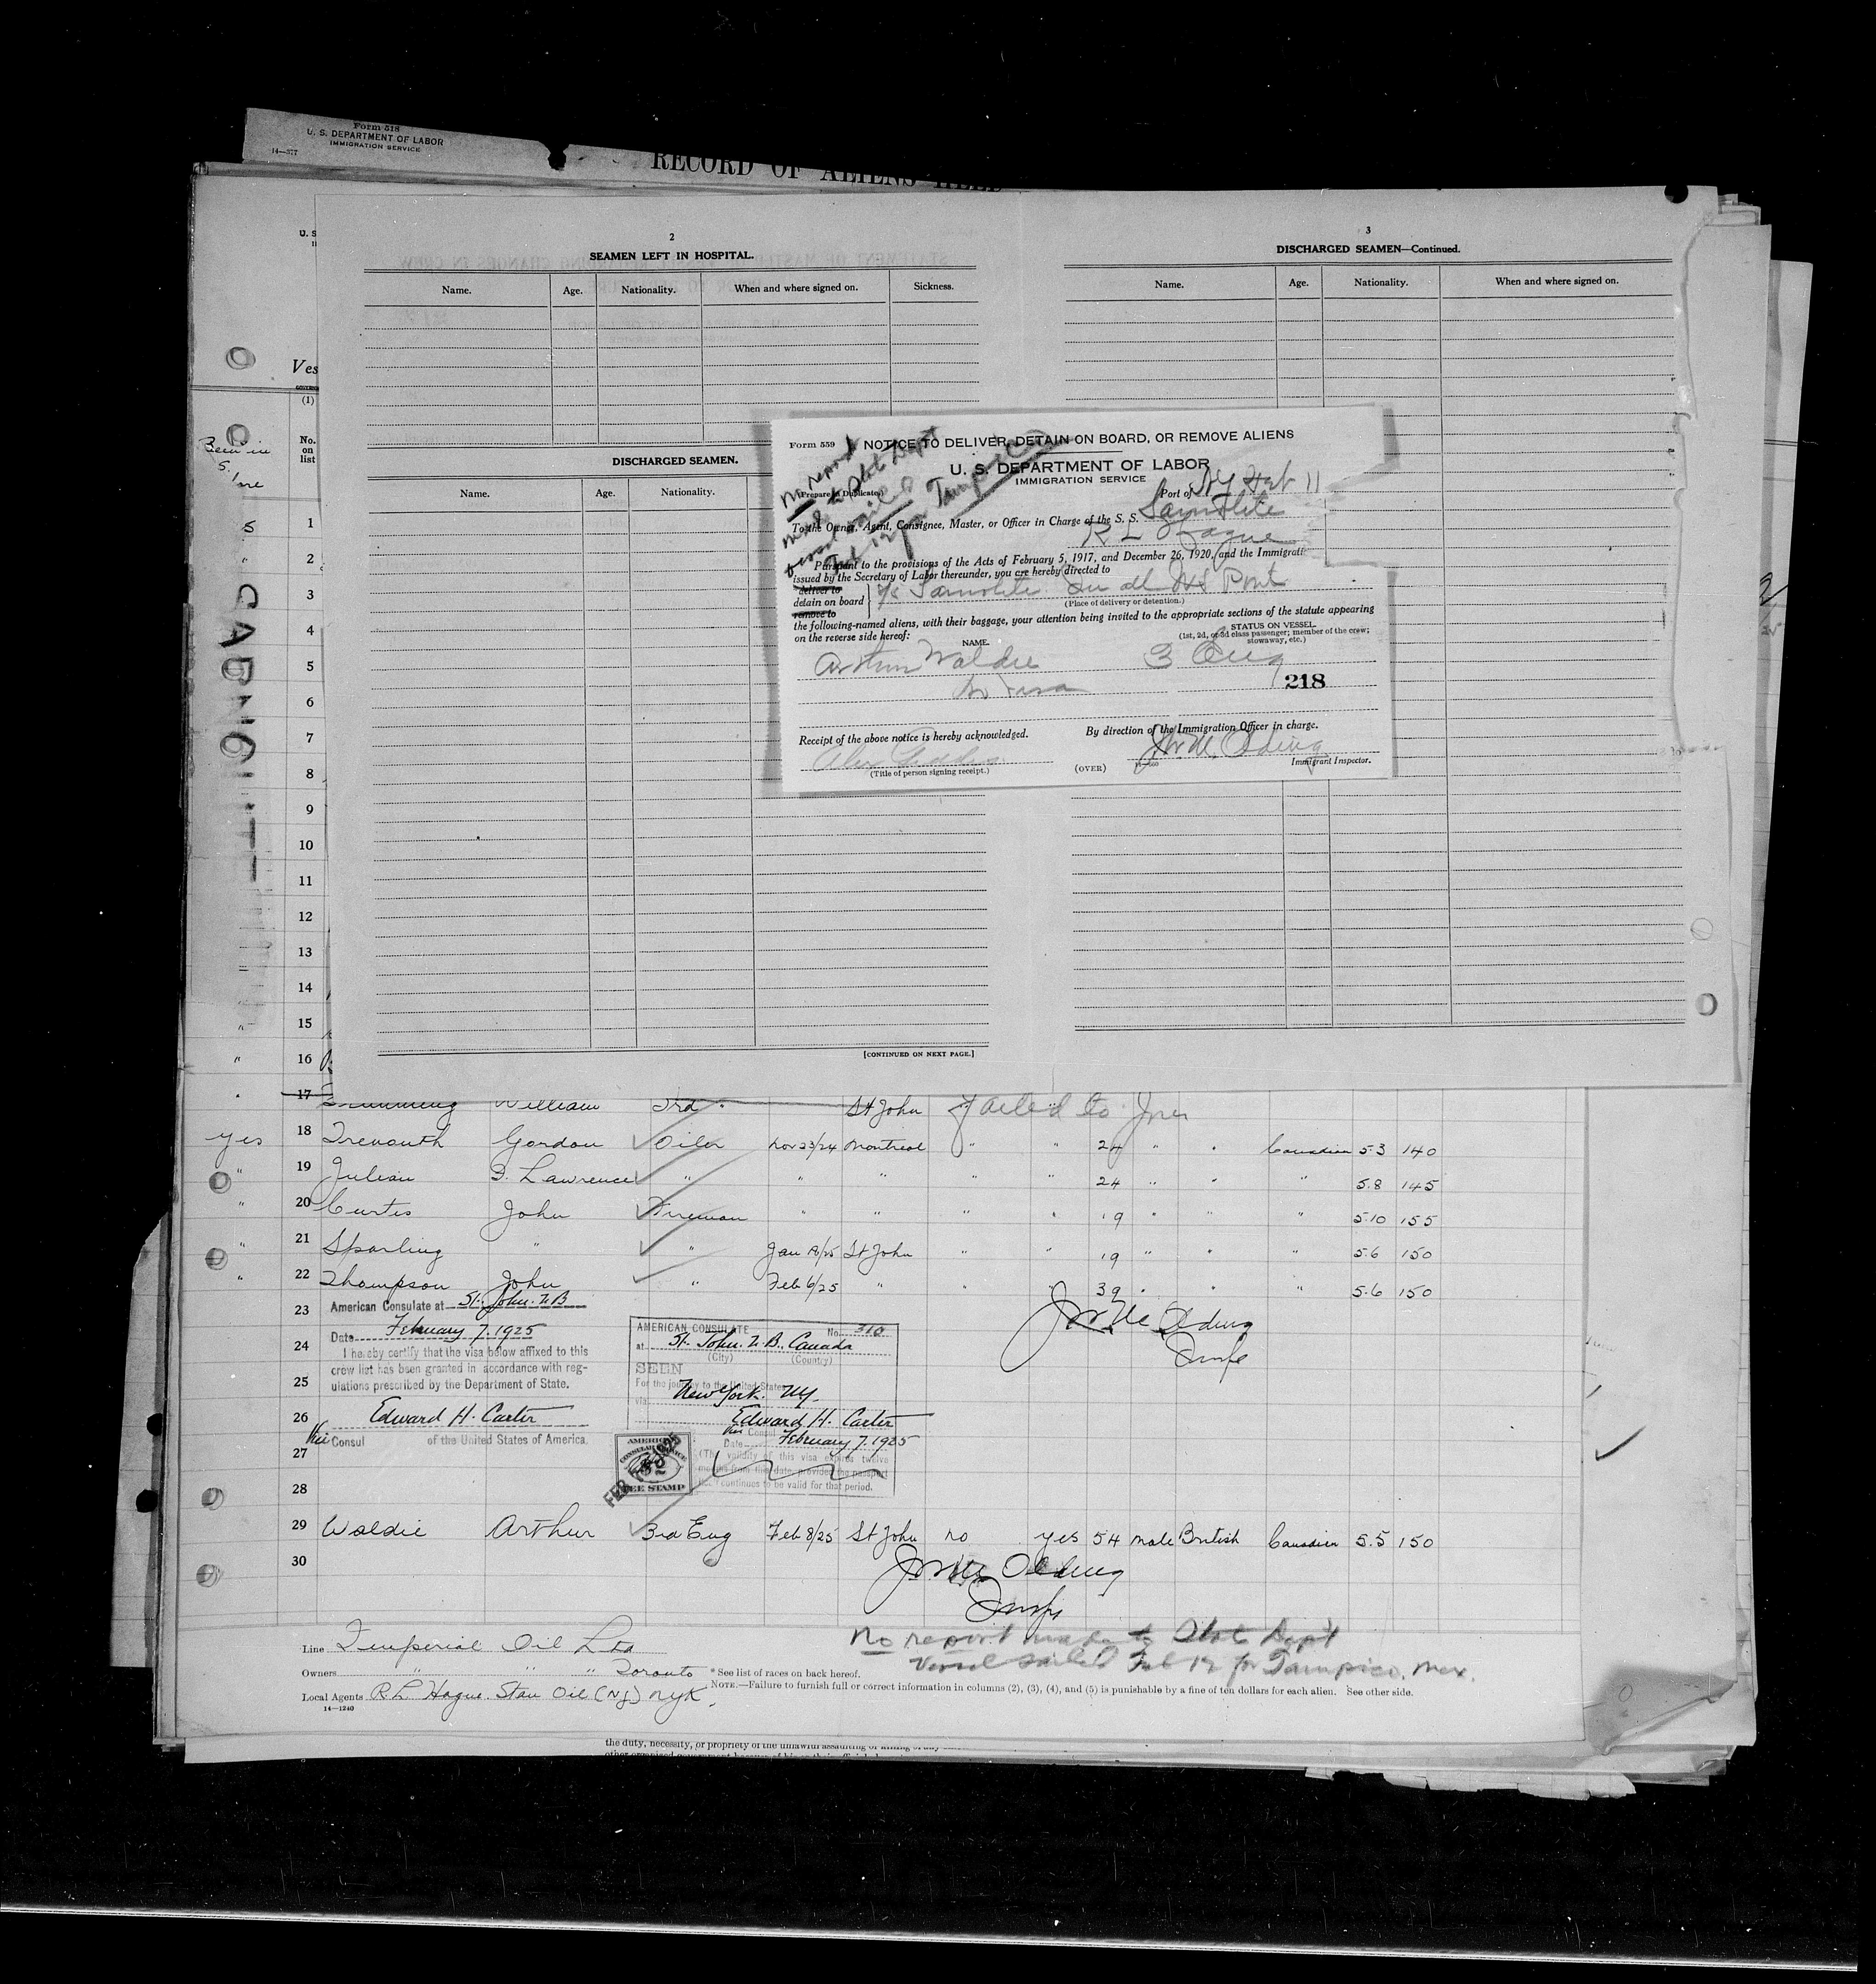 Form 518
U. S. DEPARTMENT OF LABOR
IMMIGRATION SERVICE
14—377
RECORD OF ALIENS HELD
U. S
Ves
(1)
No.
on
list
2
SEAMEN LEFT IN HOSPITAL.
Name. Age. Nationality. When and where signed on. Sickness.
DISCHARGED SEAMEN.
Name. Age. Nationality.
[CONTINUED ON NEXT PAGE.]
3
DISCHARGED SEAMEN—Continued.
Name. Age. Nationality. When and where signed on.
Form 559 NOTICE TO DELIVER, DETAIN ON BOARD, OR REMOVE ALIENS
U. S. DEPARTMENT OF LABOR
IMMIGRATION SERVICE
(Prepare in Duplicate)
No report
made to Stat Dept
vessel sailed
Feb 12 for Tampico
Port of NY Feb 11
To the Owner, Agent, Consignee, Master, or Officer in Charge of the S. S.
R L Hague
Pursuant to the provisions of the Acts of February 5, 1917, and December 26, 1920, and the Immigrati
issued by the Secretary of Labor thereunder, you are hereby directed to
deliver to
detain on board
remove to
(Place of delivery or detention.)
the following-named aliens, with their baggage, your attention being invited to the appropriate sections of the statute appearing
on the reverse side hereof:
NAME.
STATUS ON VESSEL.
(1st, 2d, or 3d class passenger; member of the crew;
stowaway, etc.)
Arthur Waldie 3 Eng
no visa
218
Receipt of the above notice is hereby acknowledged.
By direction of the Immigration Officer in charge.
(Title of person signing receipt.)
(OVER)
Immigrant Inspector.
1
2
3
4
5
6
7
8
9
10
11
12
13
14
15
16
17 William 3rd " St John Failed to Join
yes 18 Trenouth Gordon Oiler Nov 23/24 Montreal " " 24 " " Canadian 5.3 140
" 19 Julian D. Lawrence " " " " " 24 " " " 5.8 145
" 20 Curtis John Fireman " " " " 19 " " " 5.10 155
" 21 Sparling " " Jan 18/25 St John " " 19 " " " 5.6 150
" 22 Thompson John " Feb 6/25 " " " 39 " " " 5.6 150
23
24
25
26
27
28
American Consulate at St. John. N.B
Date February 7. 1925
I hereby certify that the visa below affixed to this
crew list has been granted in accordance with reg-
ulations prescribed by the Department of State.
Edward H. Carter
Vice Consul of the United States of America.
AMERICAN CONSULATE No. 310
at St. John. N.B., Canada
(City) (Country)
SEEN
For the journey to the United States
via New York. NY.
Edward H. Carter
Vice Consul
Date February 7. 1925
(The validity of this visa expires twelve
months from this date provided the passport
continues to be valid for that period.
AMERICAN
CONSULAR SERVICE
2
FEE STAMP
29 Waldie Arthur 3rd Eng Feb 8/25 St John no yes 54 male British Canadian 5.5 150
30
No report made to Stat Dept
Vessel sailed Feb 12 for Tampico, Mex.
Line Imperial Oil Ltd
Owners " " " Toronto
*See list of races on back hereof.
Local Agents R L Hague Stan Oil (NJ) NYK.
NOTE.—Failure to furnish full or correct information in columns (2), (3), (4), and (5) is punishable by a fine of ten dollars for each alien. See other side.
14—1240
the duty, necessity, or propriety of the unlawful assaulting or killing of any